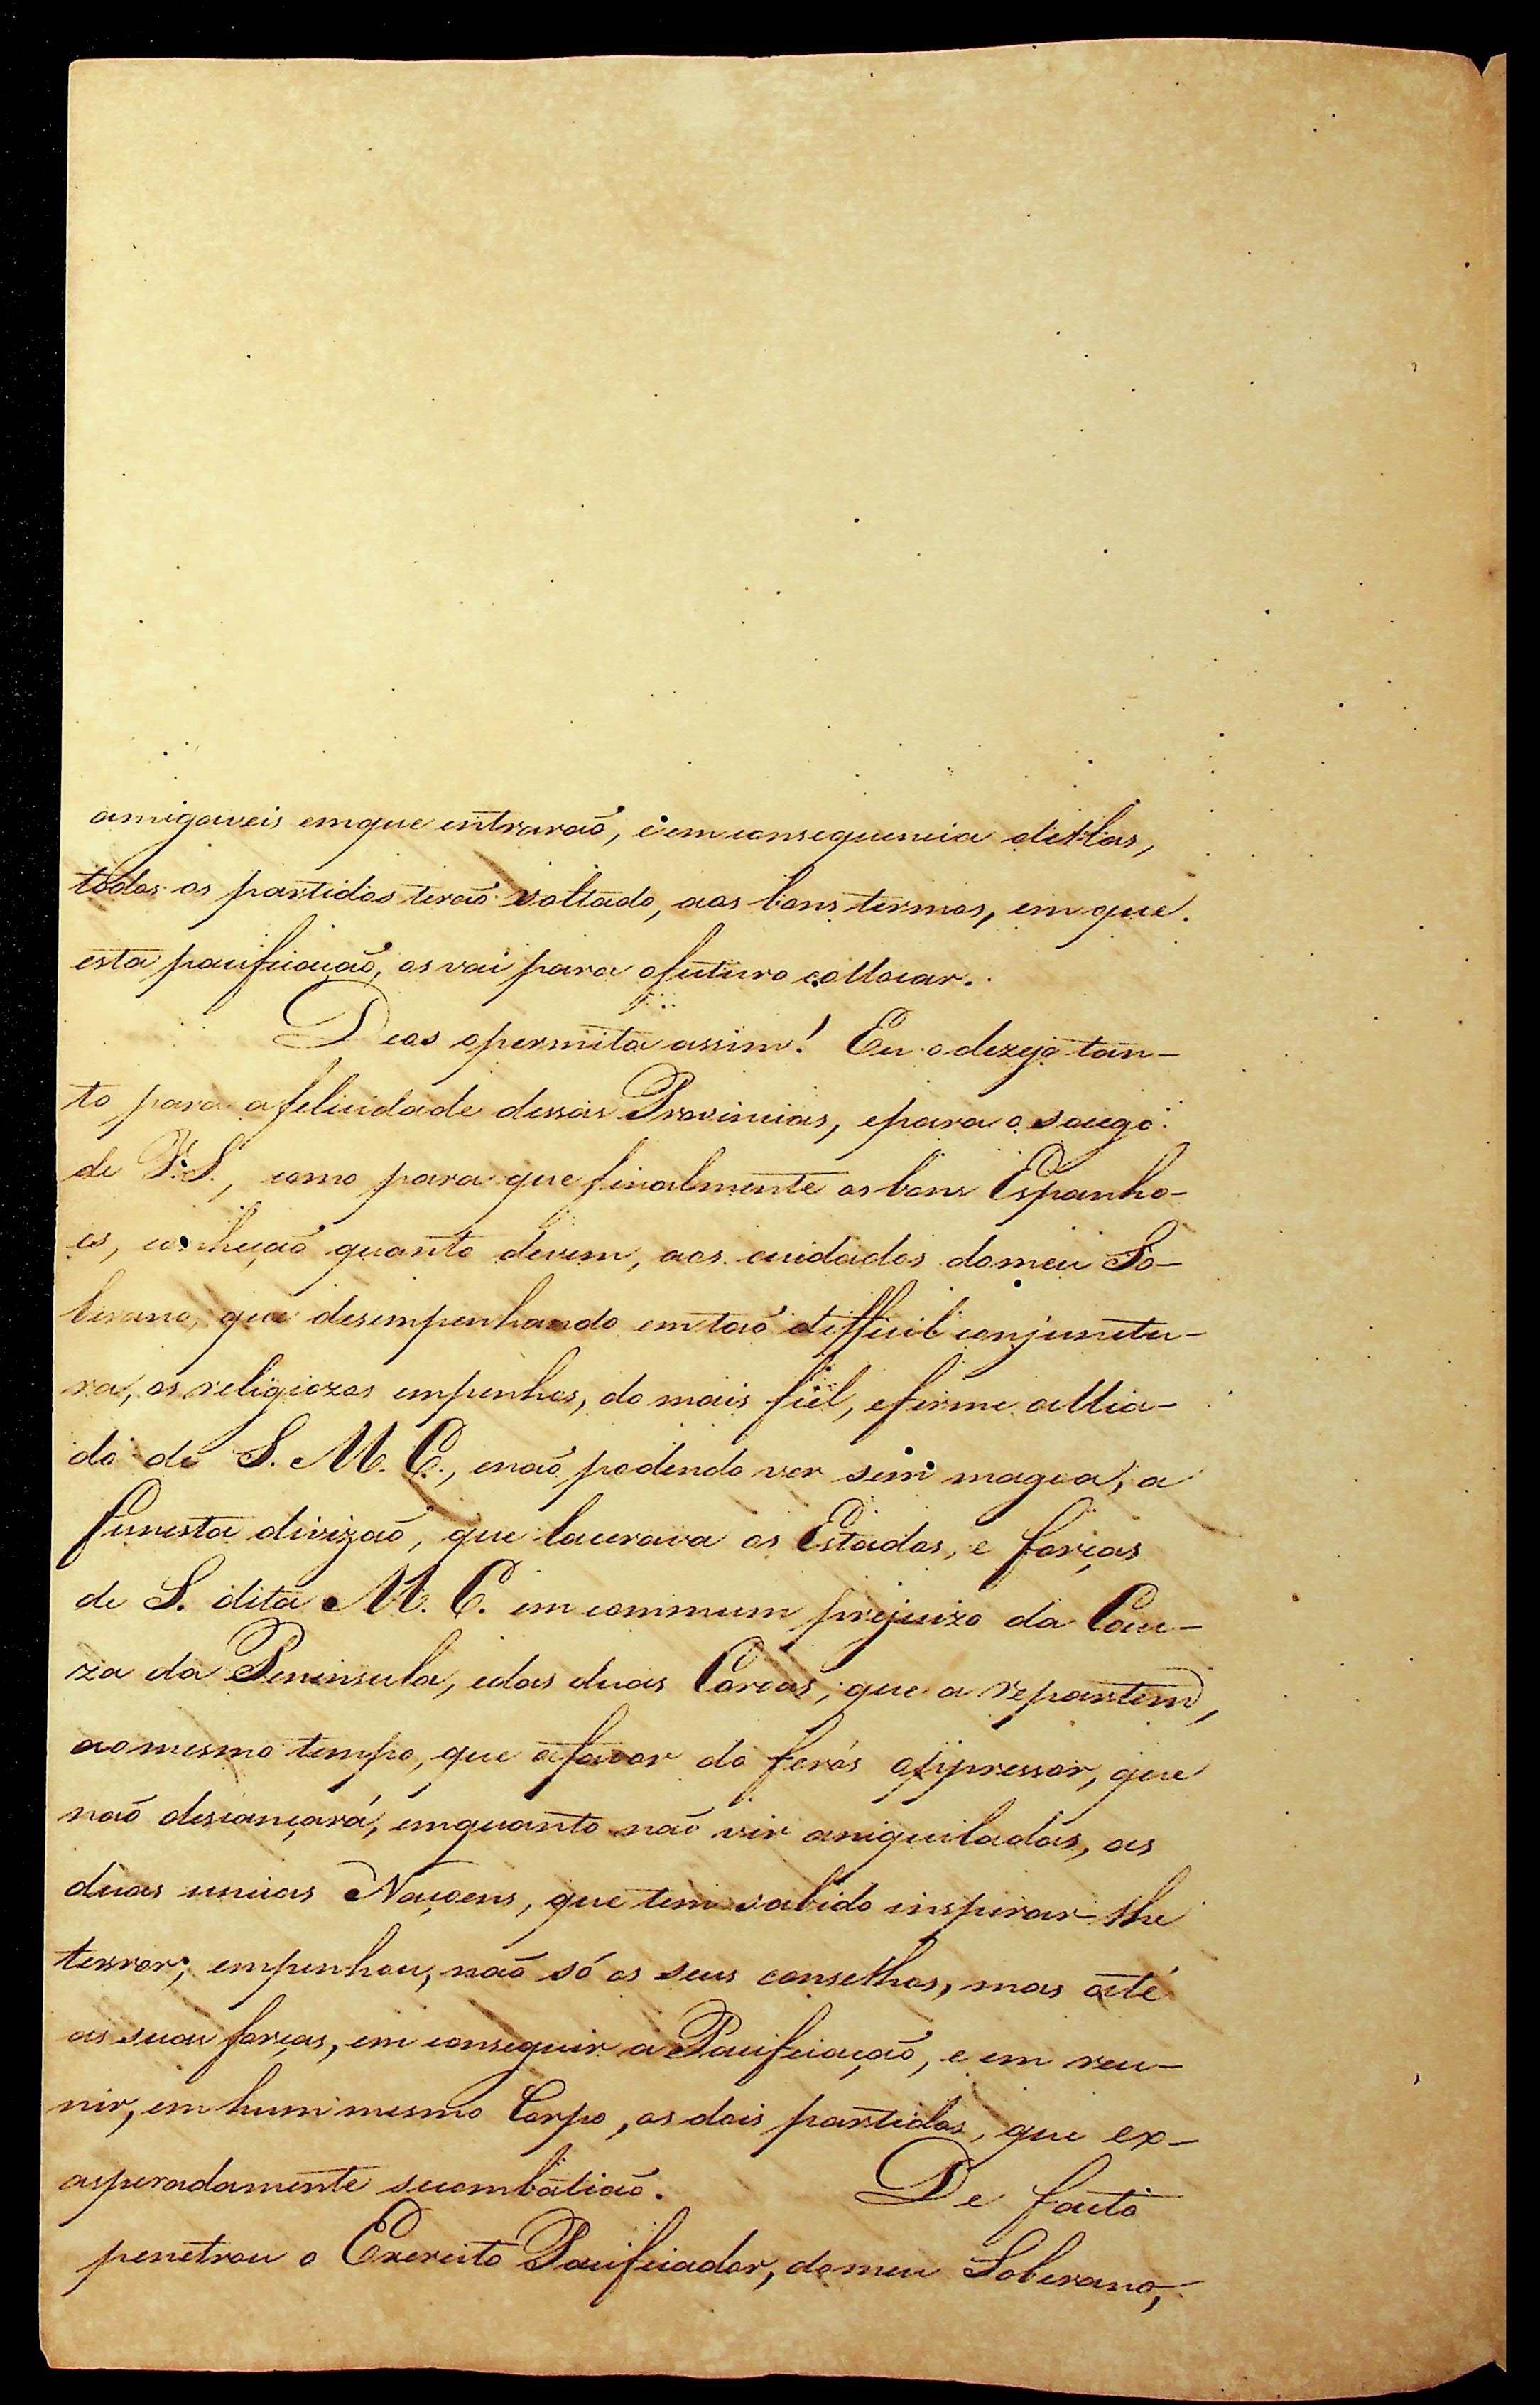 amigaveis emque entraraõ, e em consequencia dellas,
todos os partidos teraõ voltado, aos bons termos, em que
esta pacificaçaõ, os vai para ofuturo collocar.
Deos opermita assim! Eu odezejo tan-
to para afelicidade dessas Provincias, epara o socego
de V.S., como para que finalmente os bons Espanho-
es, conheçaõ quanto devem, aos cuidados domeu So-
berano, que desempenhando em taõ difficil conjunctu-
ra, os religiozos empenhos, do mais fiel, efirme allia-
do de S. M. C., enaõ podendo ver sem magoa, a
funesta divizaõ, que lacerava os Estados, e forças
de S. dita M. C. em commum prejuizo da Cau-
za da Peninsula, edas duas Coroas, que a repartem,
aomesmo tempo, que afavor do ferós oppressor, que
naõ descançará, emquanto naõ vir aniquiladas, as
duas unicas Naçoens, que tem sabido inspirar-lhe
terror; empenhou, naõ só os seus conselhos, mas até
as suas forças, em conseguir a Pacificaçaõ, e em reu-
nir, em hum mesmo Corpo, os dois partidos, que ex-
asperadamente secombatiaõ. De facto
penetrou o Exercito Pacificador, domeu Soberano,